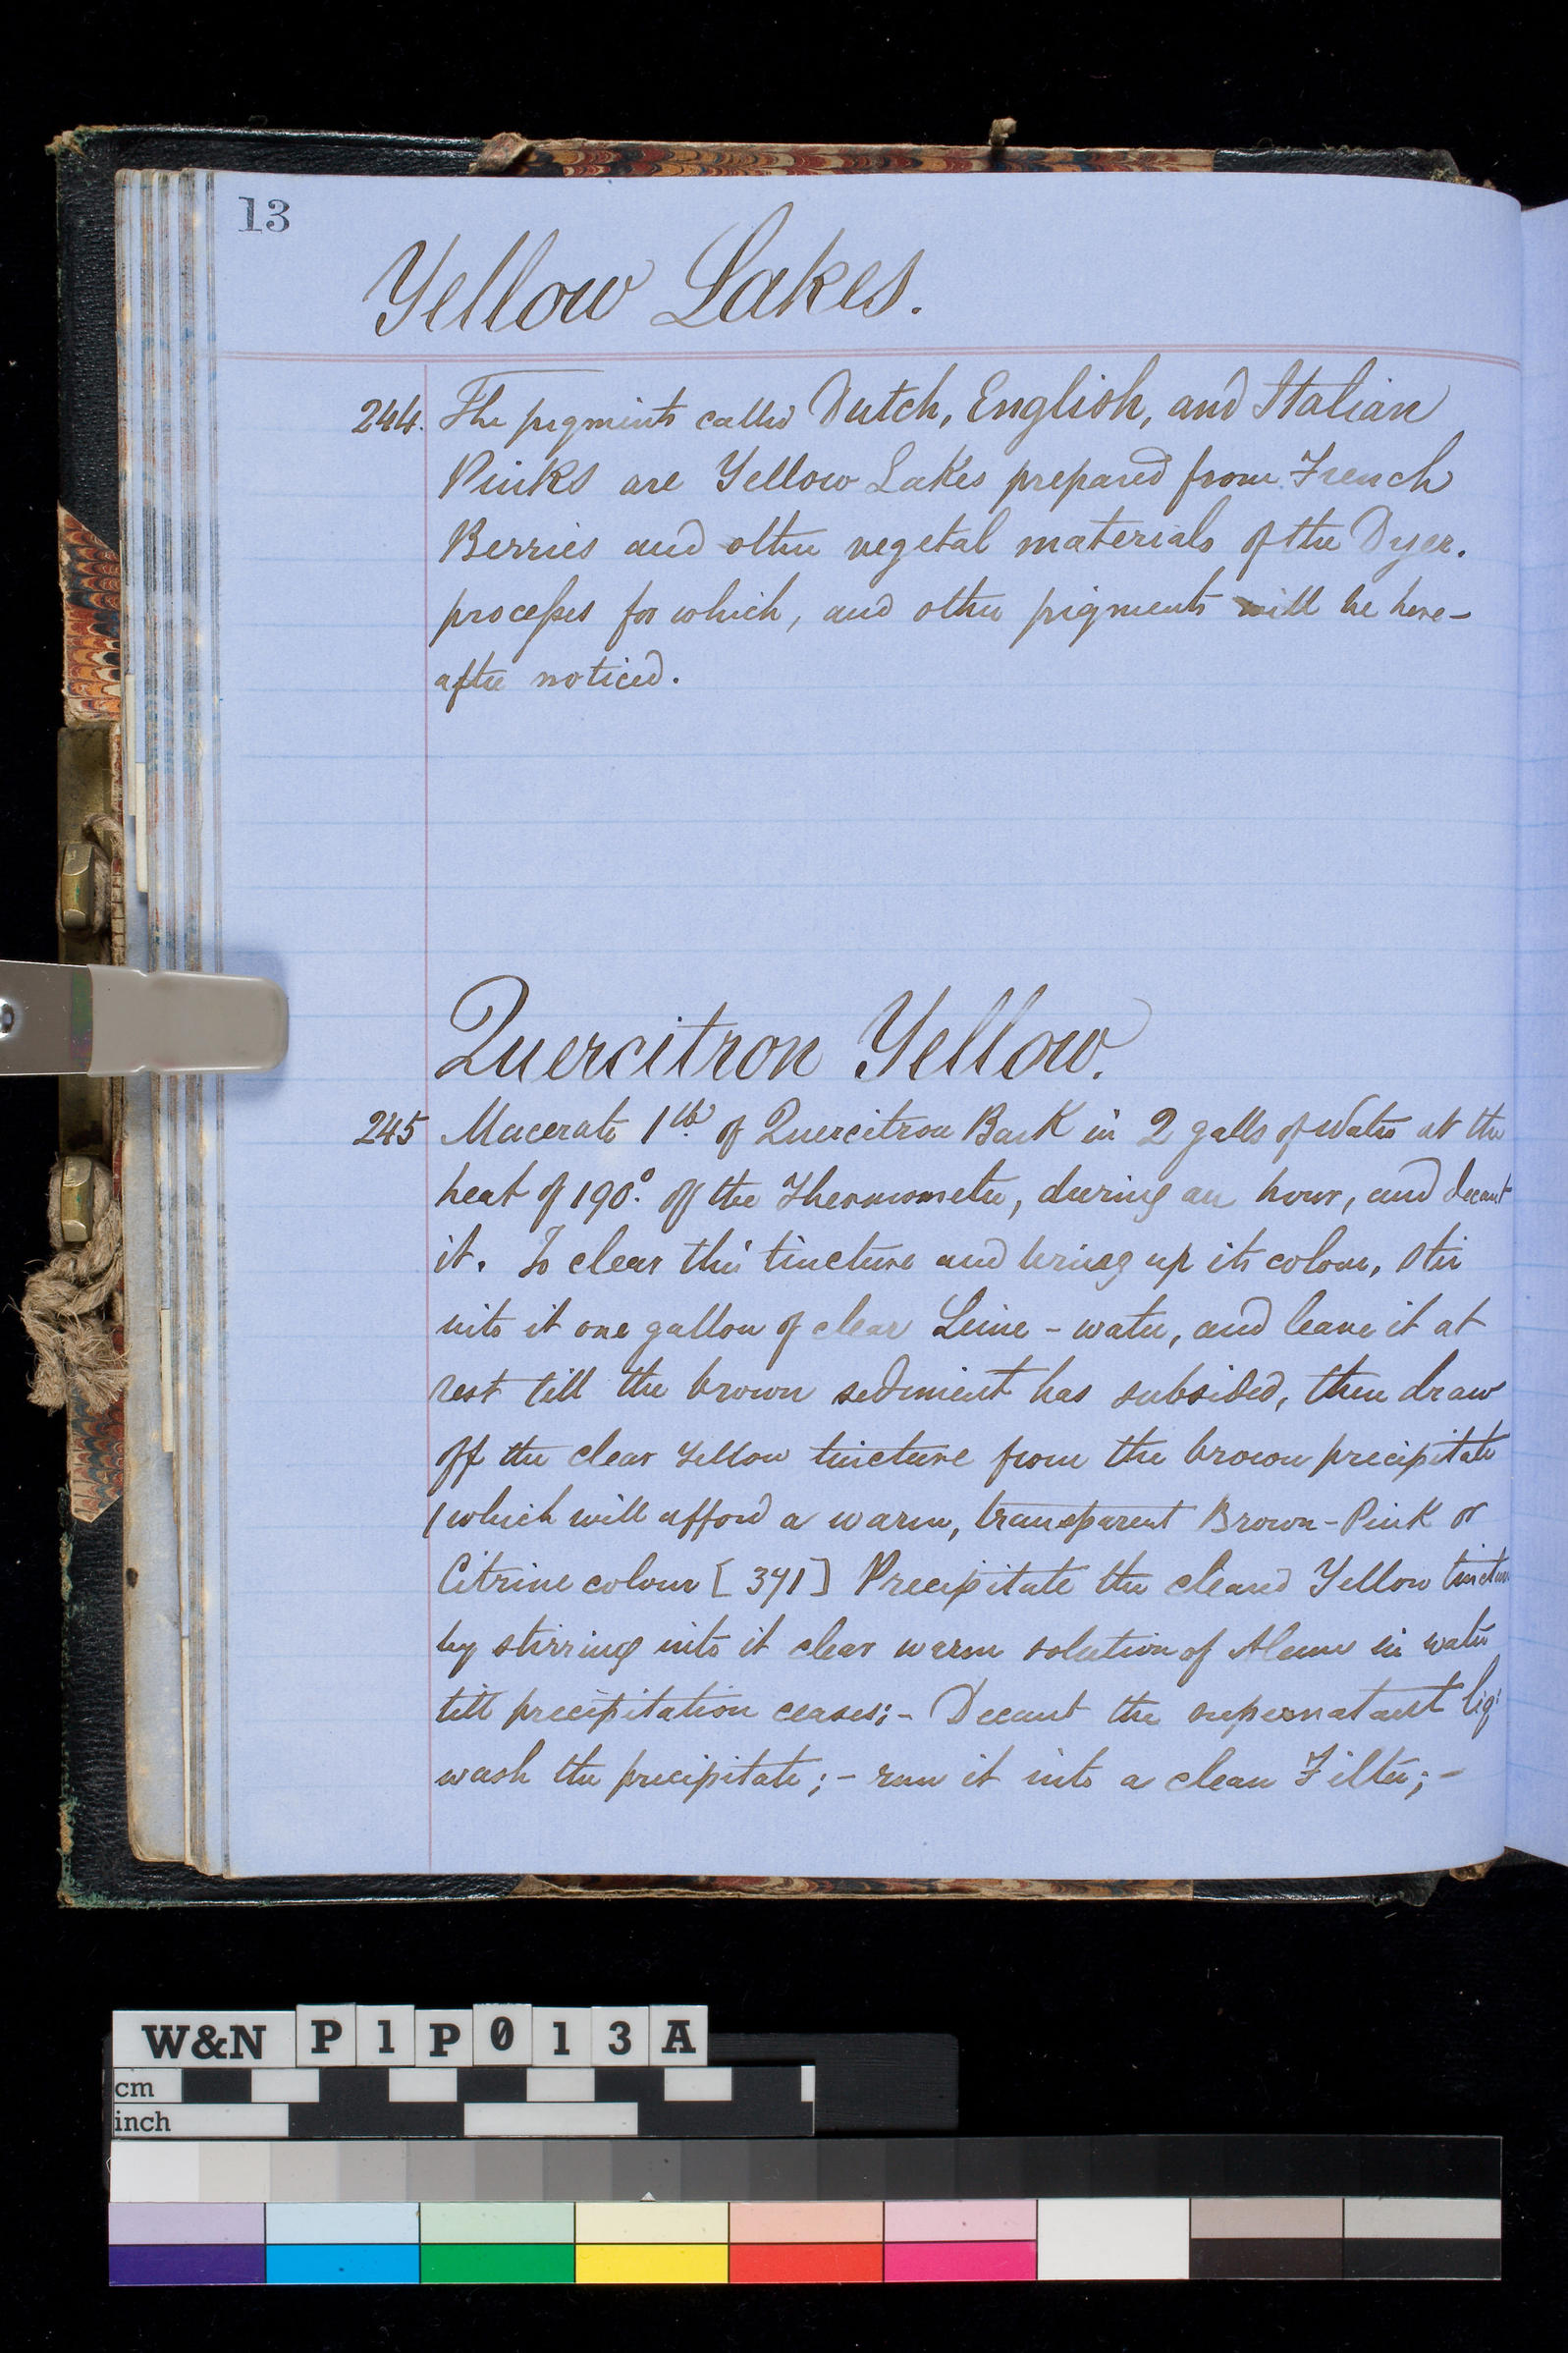 13
Yellow Lakes.
244. The pigments called Dutch, English, and Italian
Pinks are Yellow Lakes prepared from French
Berries and other vegetal materials of the Dyer.
processes for which, and other pigments will be here-
after noticed.
Quercitron Yellow.
245 Macerate 1 lb. of Quercitron Bark in 2 galls of Water at the
heat of 190.° of the Thermometer, during an hour, and decant
it. To clear this tincture and bring up its colour, stir
into it one gallon of clear Lime-water, and leave it at
rest till the brown sediment has subsided, then draw
off the clear Yellow tincture from the brown precipitate
(which will afford a warm, transparent Brown-Pink or
Citrine colour [371] Precipitate the cleared Yellow tincture
by stirring into it clear warm solution of Alum in water
till precipitation ceases;- Decant the supernatant liq:
wash the precipitate;- run it into a clean Filter;-
W&N P1P013A
cm
inch